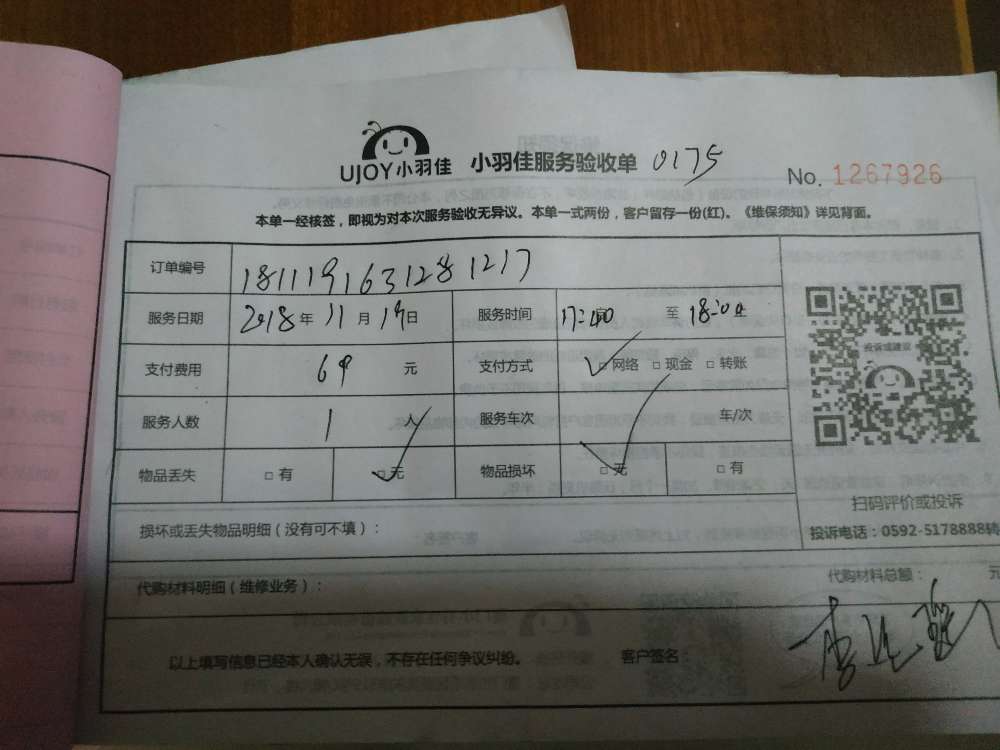 UJOY小羽佳 小羽佳服务验收单 0175
No. 1267926
本单一经核签，即视为对本次服务验收无异议。本单一式两份，客户留存一份(红)。《维保须知》详见背面。
订单编号 1811191631281217
服务日期 2018年11月19日 服务时间 17:40 至 18:00
支付费用 69 元 支付方式 ✓□网络 □现金 □转账
服务人数 1 人 服务车次 车/次
物品丢失 □有 ✓□无 物品损坏 ✓□无 □有
投诉或建议
扫码评价或投诉
投诉电话：0592-5178888转
损坏或丢失物品明细（没有可不填）：
代购材料明细（维修业务）： 代购材料总额： 元
以上填写信息已经本人确认无误，不存在任何争议纠纷。 客户签名：